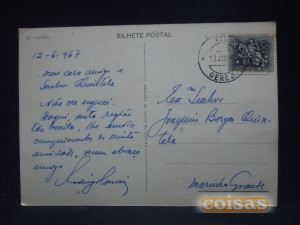 BILHETE POSTAL
12-6-967
meu caro amigo e
Senhor Quintela
Não me esqueci.
Daqui, nesta região
tão bonita, lhe envio
cumprimentos de muita
amizade, num abraço
amigo
Exmo Senhor
Joaquim Borges Quin-
tela
Marinha Grande
GEREZ
coisas